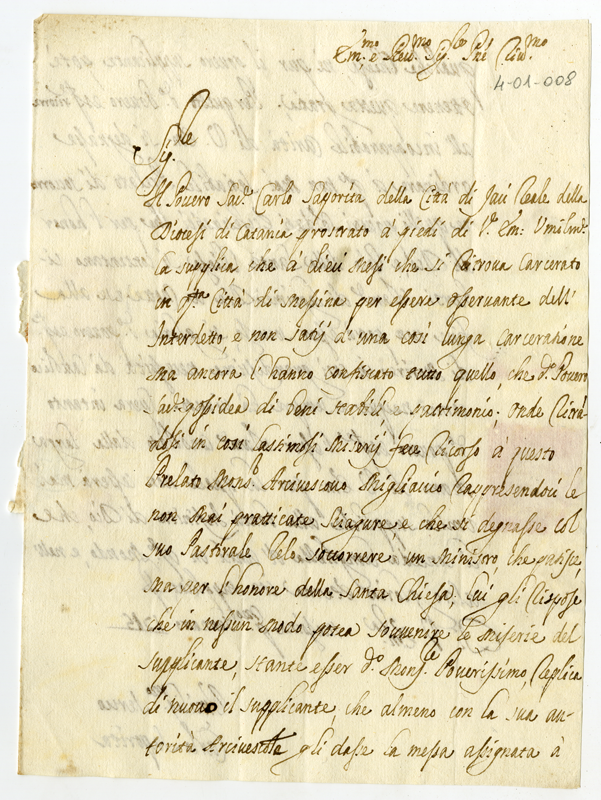 Em.mo e Rev.mo Sig.re Pne Clm.o
4-01-008
Sig.re
Il Povero Sac.e Carlo Saporita della Città di Jaci Reale della
Diocesi di Catania prostrato à piedi di V.a Em: Umilm.te
La supplica che à dieci Mesi che si Ritrova Carcerato
in q.ta Città di Messina per essere osservante dell'
Interdetto e non Satij d'una così lunga Carceratione
Ma ancora l'hanno confiscato tutto quello, che d.o Povero
Sac.e possidea di beni stabili e patrimonio. onde Ritrovan-
dosi in così lastimosi Miserij fece Ricorso à questo
Prelato Mons.r Arcivescovo Migliaccio Rappresendoci le
non Mai pratticate sciagure e che si degnasse col
suo Pastorale Zelo soccorrere un Ministro, che patisce,
ma per l'honore della Santa Chiesa, lui gli Rispose
che in nessun Modo potea souvenire le Miserie del
supplicante, stante esser d.o Mons.r Poverissimo, Replica
di nuovo il supplicante, che almeno con la sua au-
torità Arcivescovile gli dasse la messa assignata à